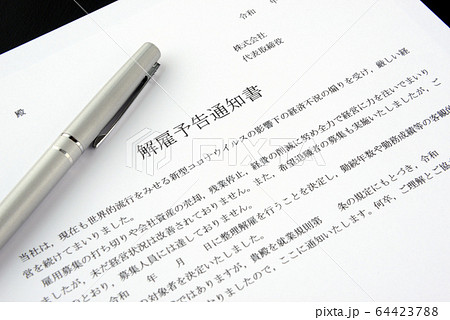 令和　年
株式会社
代表取締役
殿
解雇予告通知書
当社は、現在も世界的流行をみせる新型コロナウイルスの影響下の経済不況の煽りを受け、厳しい経
営を続けてまいりました。
雇用募集の打ち切りや会社資産の売却、残業停止、経費の削減に努め全力で経営に力を注いでまいり
ましたが、未だ経営状況は改善されておりません。また、希望退職者の募集も実施いたしましたが、ご
のとおり、募集人員には達しておりません。
令和　年　月　日に整理解雇を行うことを決定し、勤続年数や勤務成績等の客観的
の対象者を決定いたしました。
ではありますが、貴殿を就業規則第　条の規定にもとづき、令和
なりましたので、ここに通知いたします。何卒、ご理解とご協
PIXTA
pixta.jp - 64423788